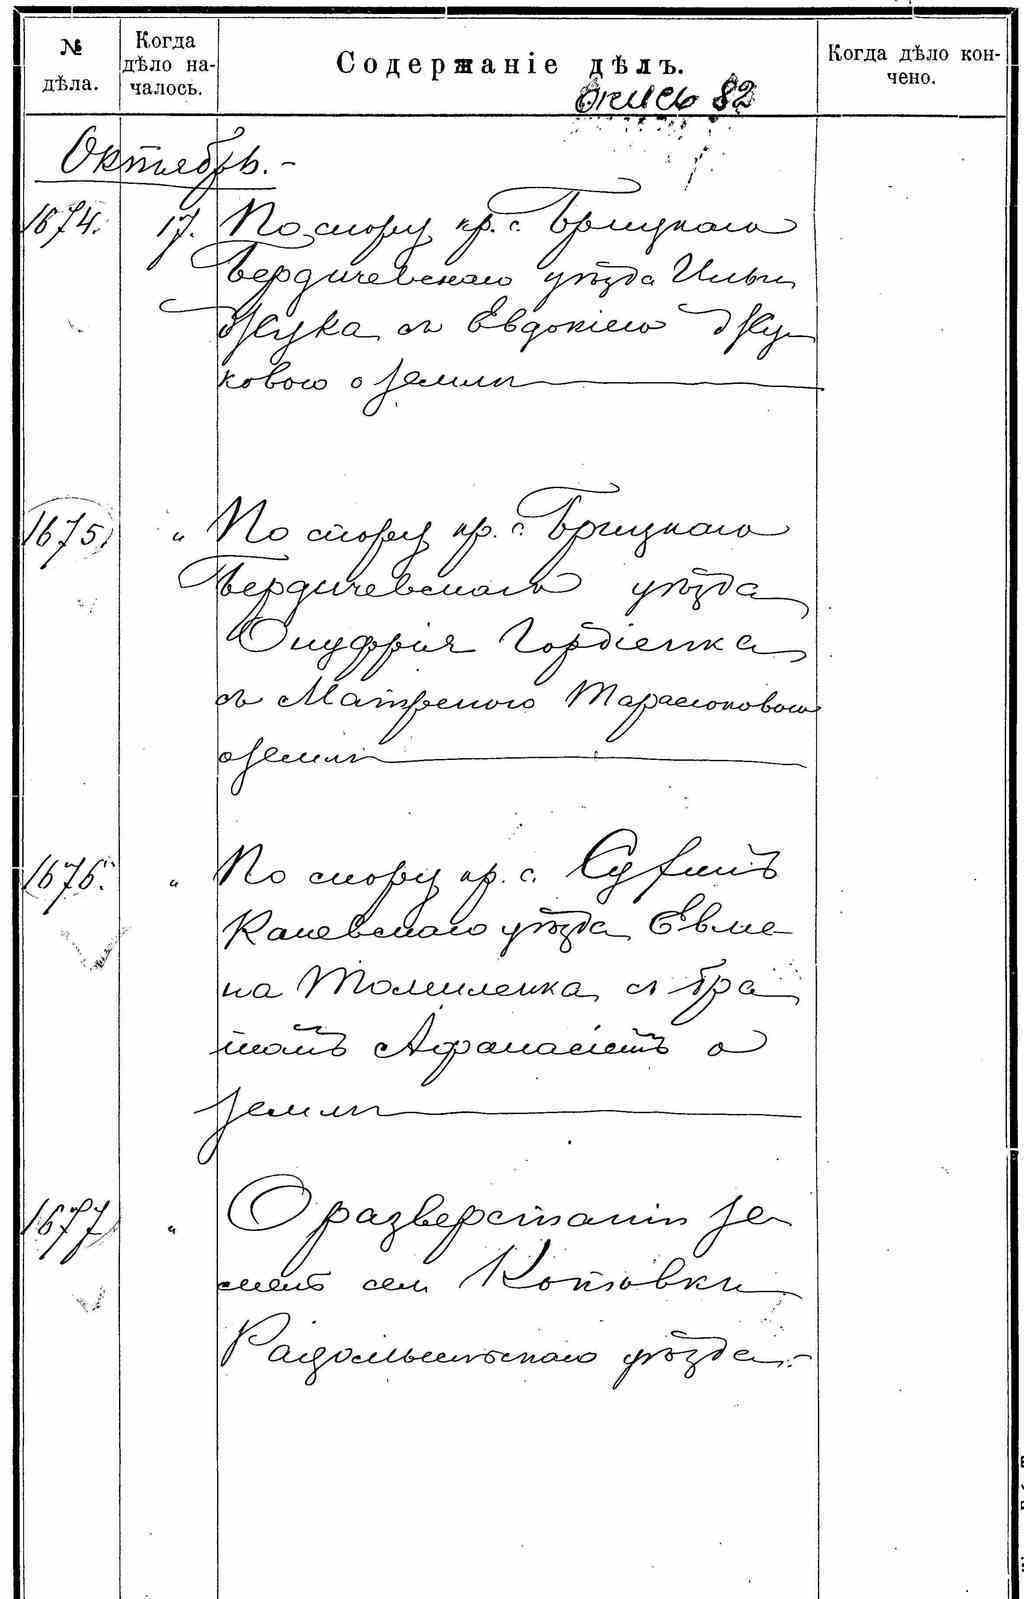 № дѣла.
Когда дѣло на-
чалось.
Содержаніе дѣлъ.
Когда дѣло кон-
чено.
Опись 82
Октябрь.-
1674. 17. По спору кр. с. Брицкаго
Бердичевскаго уѣзда Ильи
Жука съ Евдокіею Жу-
ковою о землѣ
1675. " По спору кр. с. Брицкаго
Бердичевскаго уѣзда
Онуфрія Гордіенка
съ Матреною Тарасюковою
о землѣ
1676. " По спору кр. с.
Каневскаго уѣзда Евме-
на Томиленка съ бра
томъ Афанасіемъ о
землѣ
1677. " О разверстаніи зе
мель сел. Котовки
Радомысльскаго уѣзда.-